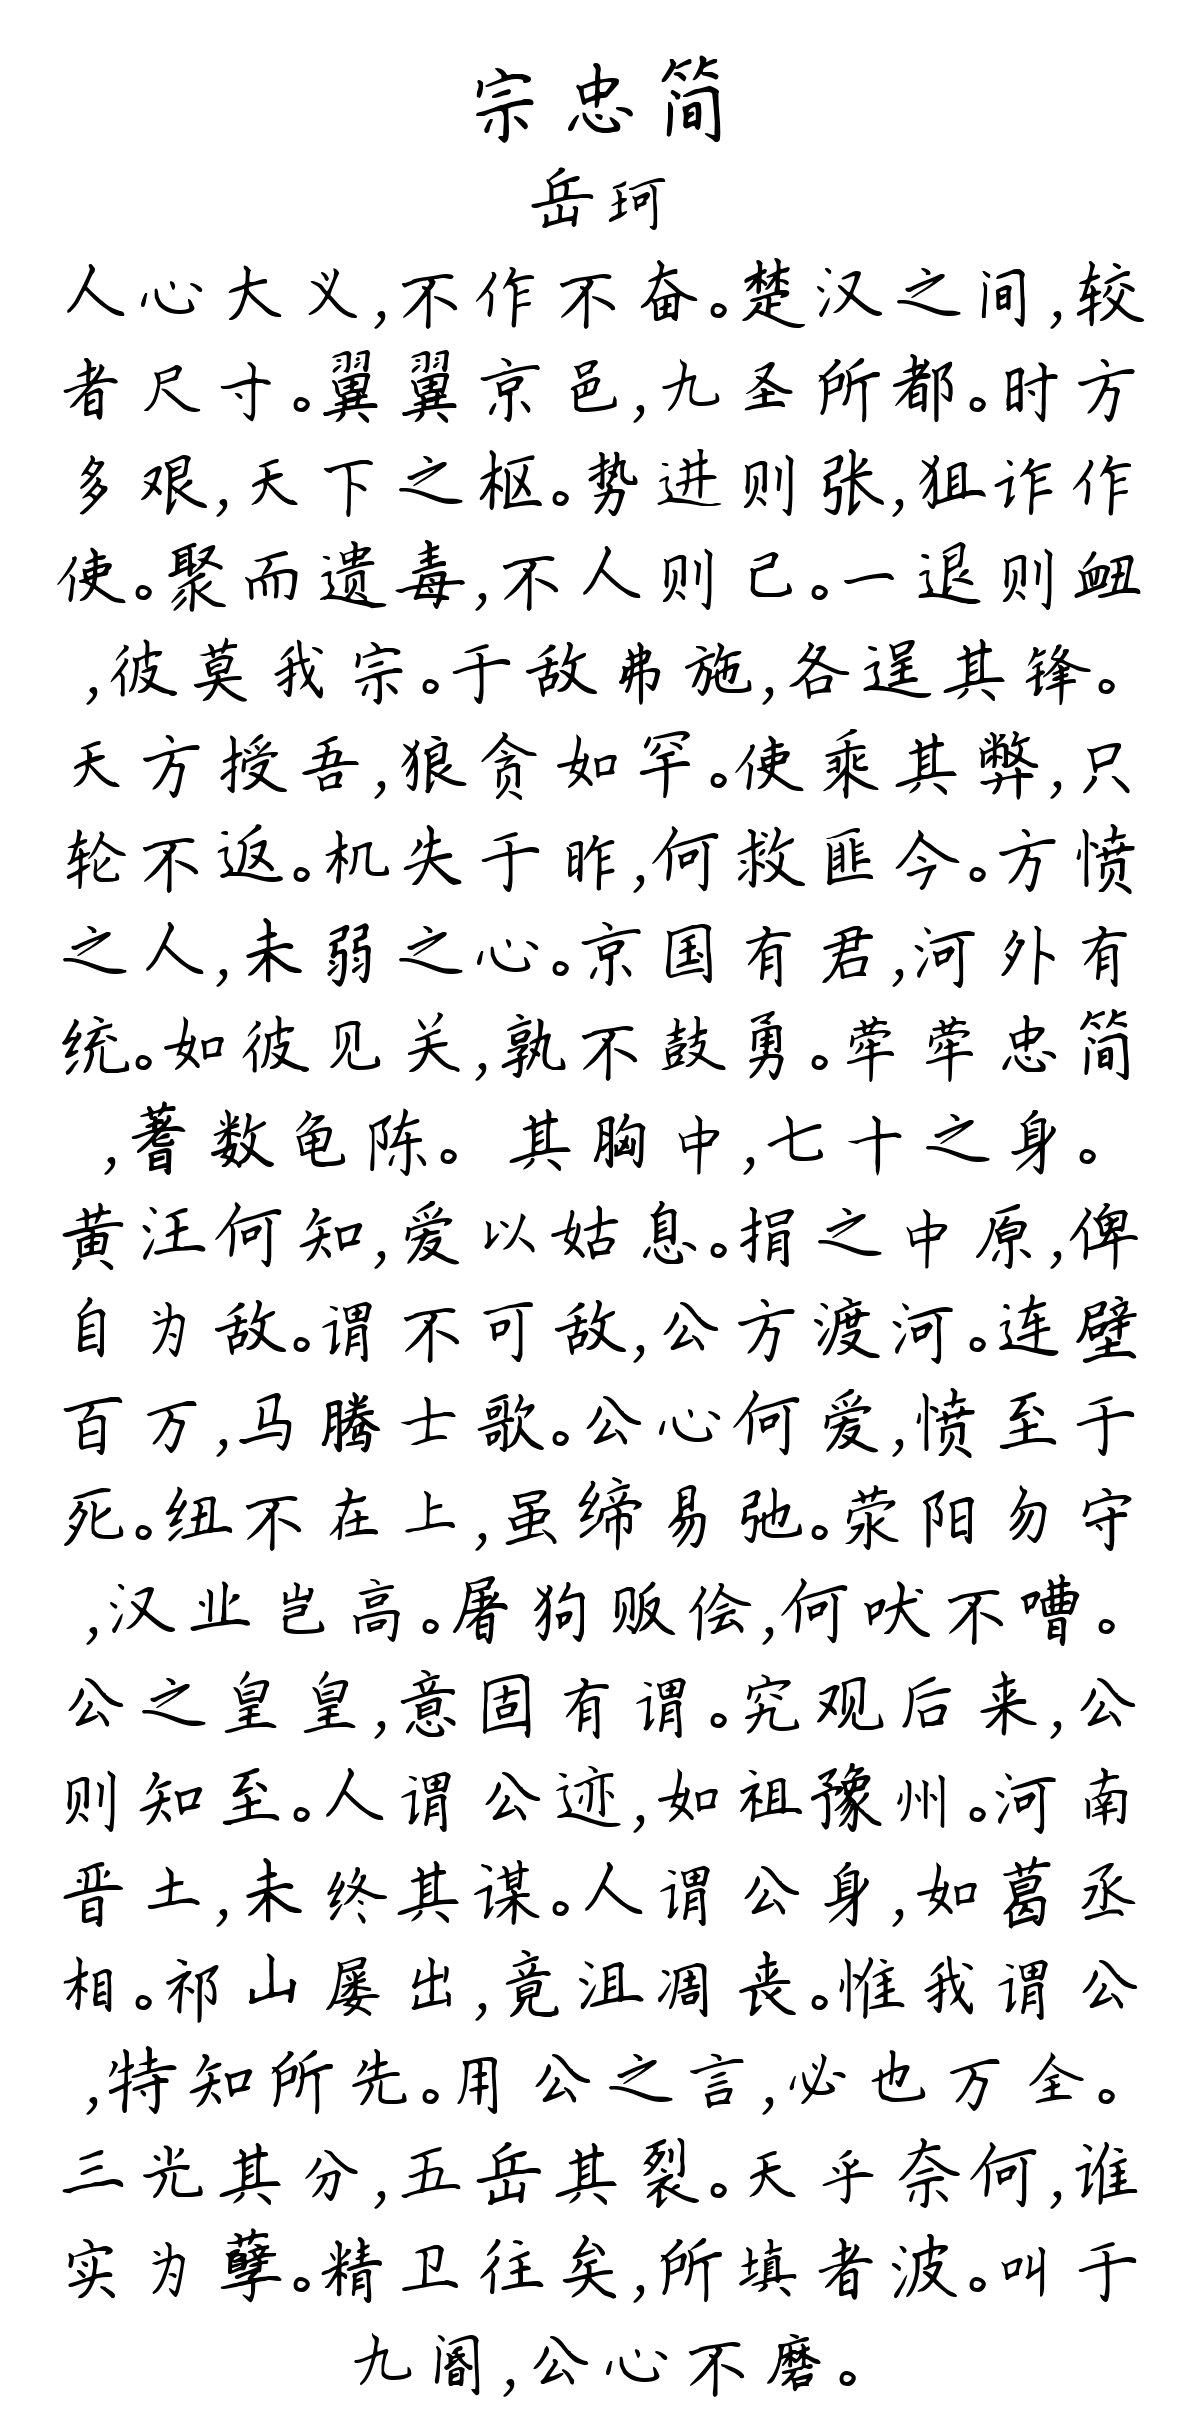 宗忠简
岳珂
人心大义,不作不奋。楚汉之间,较
者尺寸。翼翼京邑,九圣所都。时方
多艰,天下之枢。势进则张,狙诈作
使。聚而遗毒,不人则己。一退则衄
,彼莫我宗。于敌弗施,各逞其锋。
天方授吾,狼贪如罕。使乘其弊,只
轮不返。机失于昨,何救匪今。方愤
之人,未弱之心。京国有君,河外有
统。如彼见关,孰不鼓勇。荦荦忠简
,蓍数龟陈。其胸中,七十之身。
黄汪何知,爱以姑息。捐之中原,俾
自为敌。谓不可敌,公方渡河。连壁
百万,马腾士歌。公心何爱,愤至于
死。纽不在上,虽缔易弛。荥阳勿守
,汉业岂高。屠狗贩侩,何吠不嘈。
公之皇皇,意固有谓。究观后来,公
则知至。人谓公迹,如祖豫州。河南
晋土,未终其谋。人谓公身,如葛丞
相。祁山屡出,竟沮凋丧。惟我谓公
,特知所先。用公之言,必也万全。
三光其分,五岳其裂。天乎奈何,谁
实为孽。精卫往矣,所填者波。叫于
九阍,公心不磨。